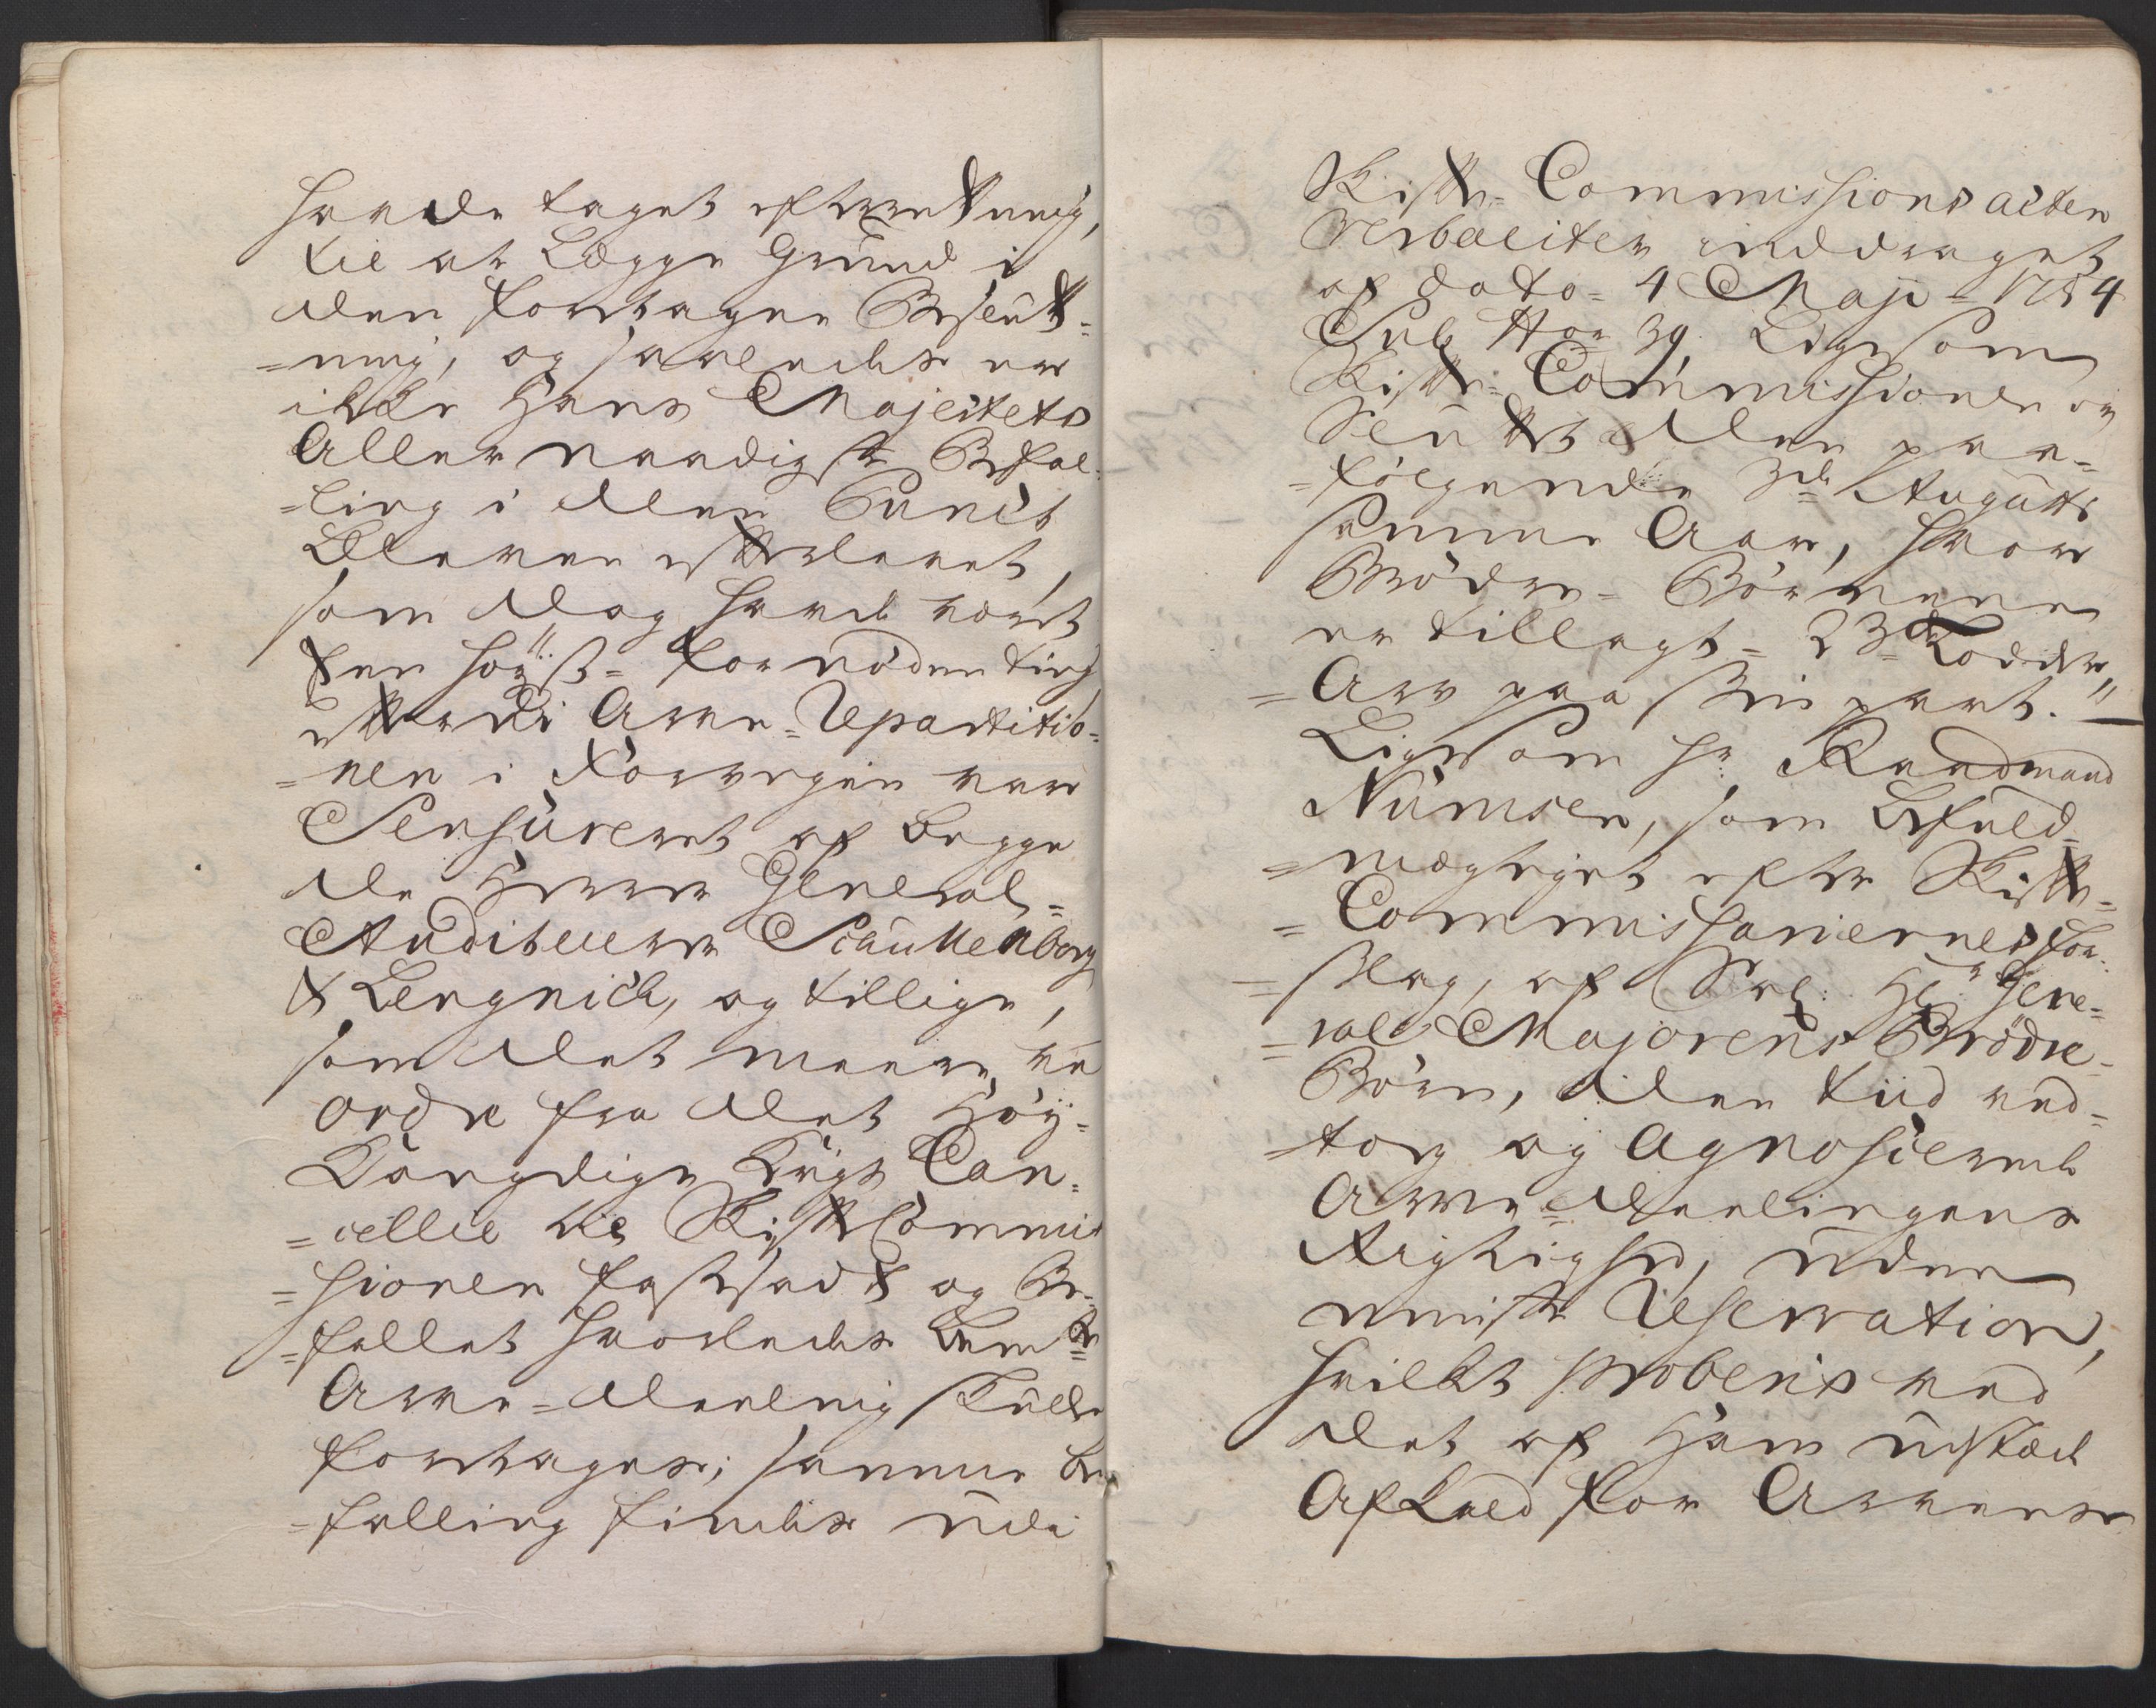 hafde taget efterretning,
til at Lægge Grund i
den foretagne Beslut=
=ning, og saaledes er
ikke Hans Majestets
Allernaadigste Befal=
=ling i den Punct
bleven efterlevet,
som dog hafde været
saa høyst= fornøden ting
efterdi Arve=Repartitio=
=nen i Norvegen var
Censureret af begge
de Herrer General=
Auditeurer Schultenborg
& Lengnich, og tillige,
som det meere, ved
ordre fra det Høy=
Lovlige Kongl Can=
=cellie til Skifte Commis
=sionen fastsadt og Be=
=fallet hvorledes bemte
Arve=Deelning skulle
foretages; samme be=
=falling findes udi
Skifte=Commissions acten
Verbaliter inddraget
af dato= 4 Maji= 1754
Sub No 39. Ligesom
Skifte=Commissionen er
Sluttet den paa=
=følgende 3de Augusti
samme Aar, hvor
Brødre=Børnene
er tillagt= 23 Lodder
=Arv paa Sin part. —
Ligesom hr Raadmand
Numsen, som befuld=
=mægtiget efter Skifte=
=Commissariernes for=
=slag, af Sal: Hr Gene=
=ral Majorens Brødre=
Børn, den tiid ved=
=tog og Agnoscerede
Arve=Deelingens
Rigtighed, uden
mindste Reservation,
hvilket proberis ved
det af Ham udstædte
Afkald for Arvens